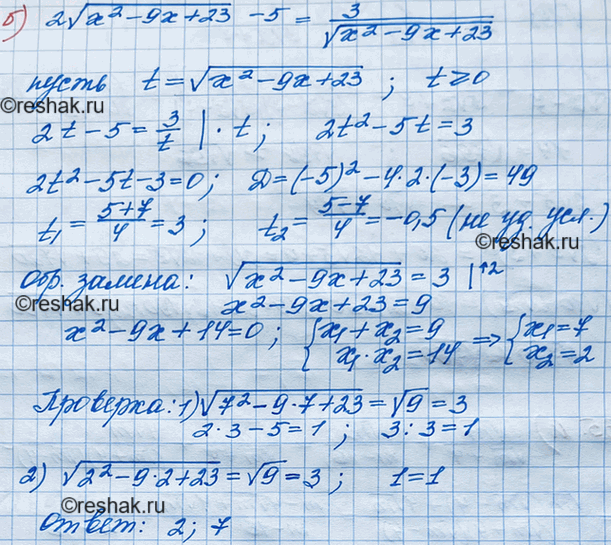 б) 2√(x²-9x+23) -5 = 3/√(x²-9x+23)
пусть t=√(x²-9x+23) ; t≥0
©reshak.ru ©reshak.ru
2t-5=3/t |·t; 2t²-5t=3
2t²-5t-3=0; D=(-5)²-4·2·(-3)=49
t₁=(5+7)/4=3; t₂=(5-7)/4=-0,5 (не уд. усл.)
©reshak.ru
Обр. замена: √(x²-9x+23)=3 |↑2
x²-9x+23=9
x²-9x+14=0; {x₁+x₂=9 x₁·x₂=14 => {x₁=7 x₂=2
Проверка: 1)√(7²-9·7+23)=√9=3
2·3-5=1; 3:3=1
2) √(2²-9·2+23)=√9=3; 1=1
©reshak.ru
Ответ: 2; 7